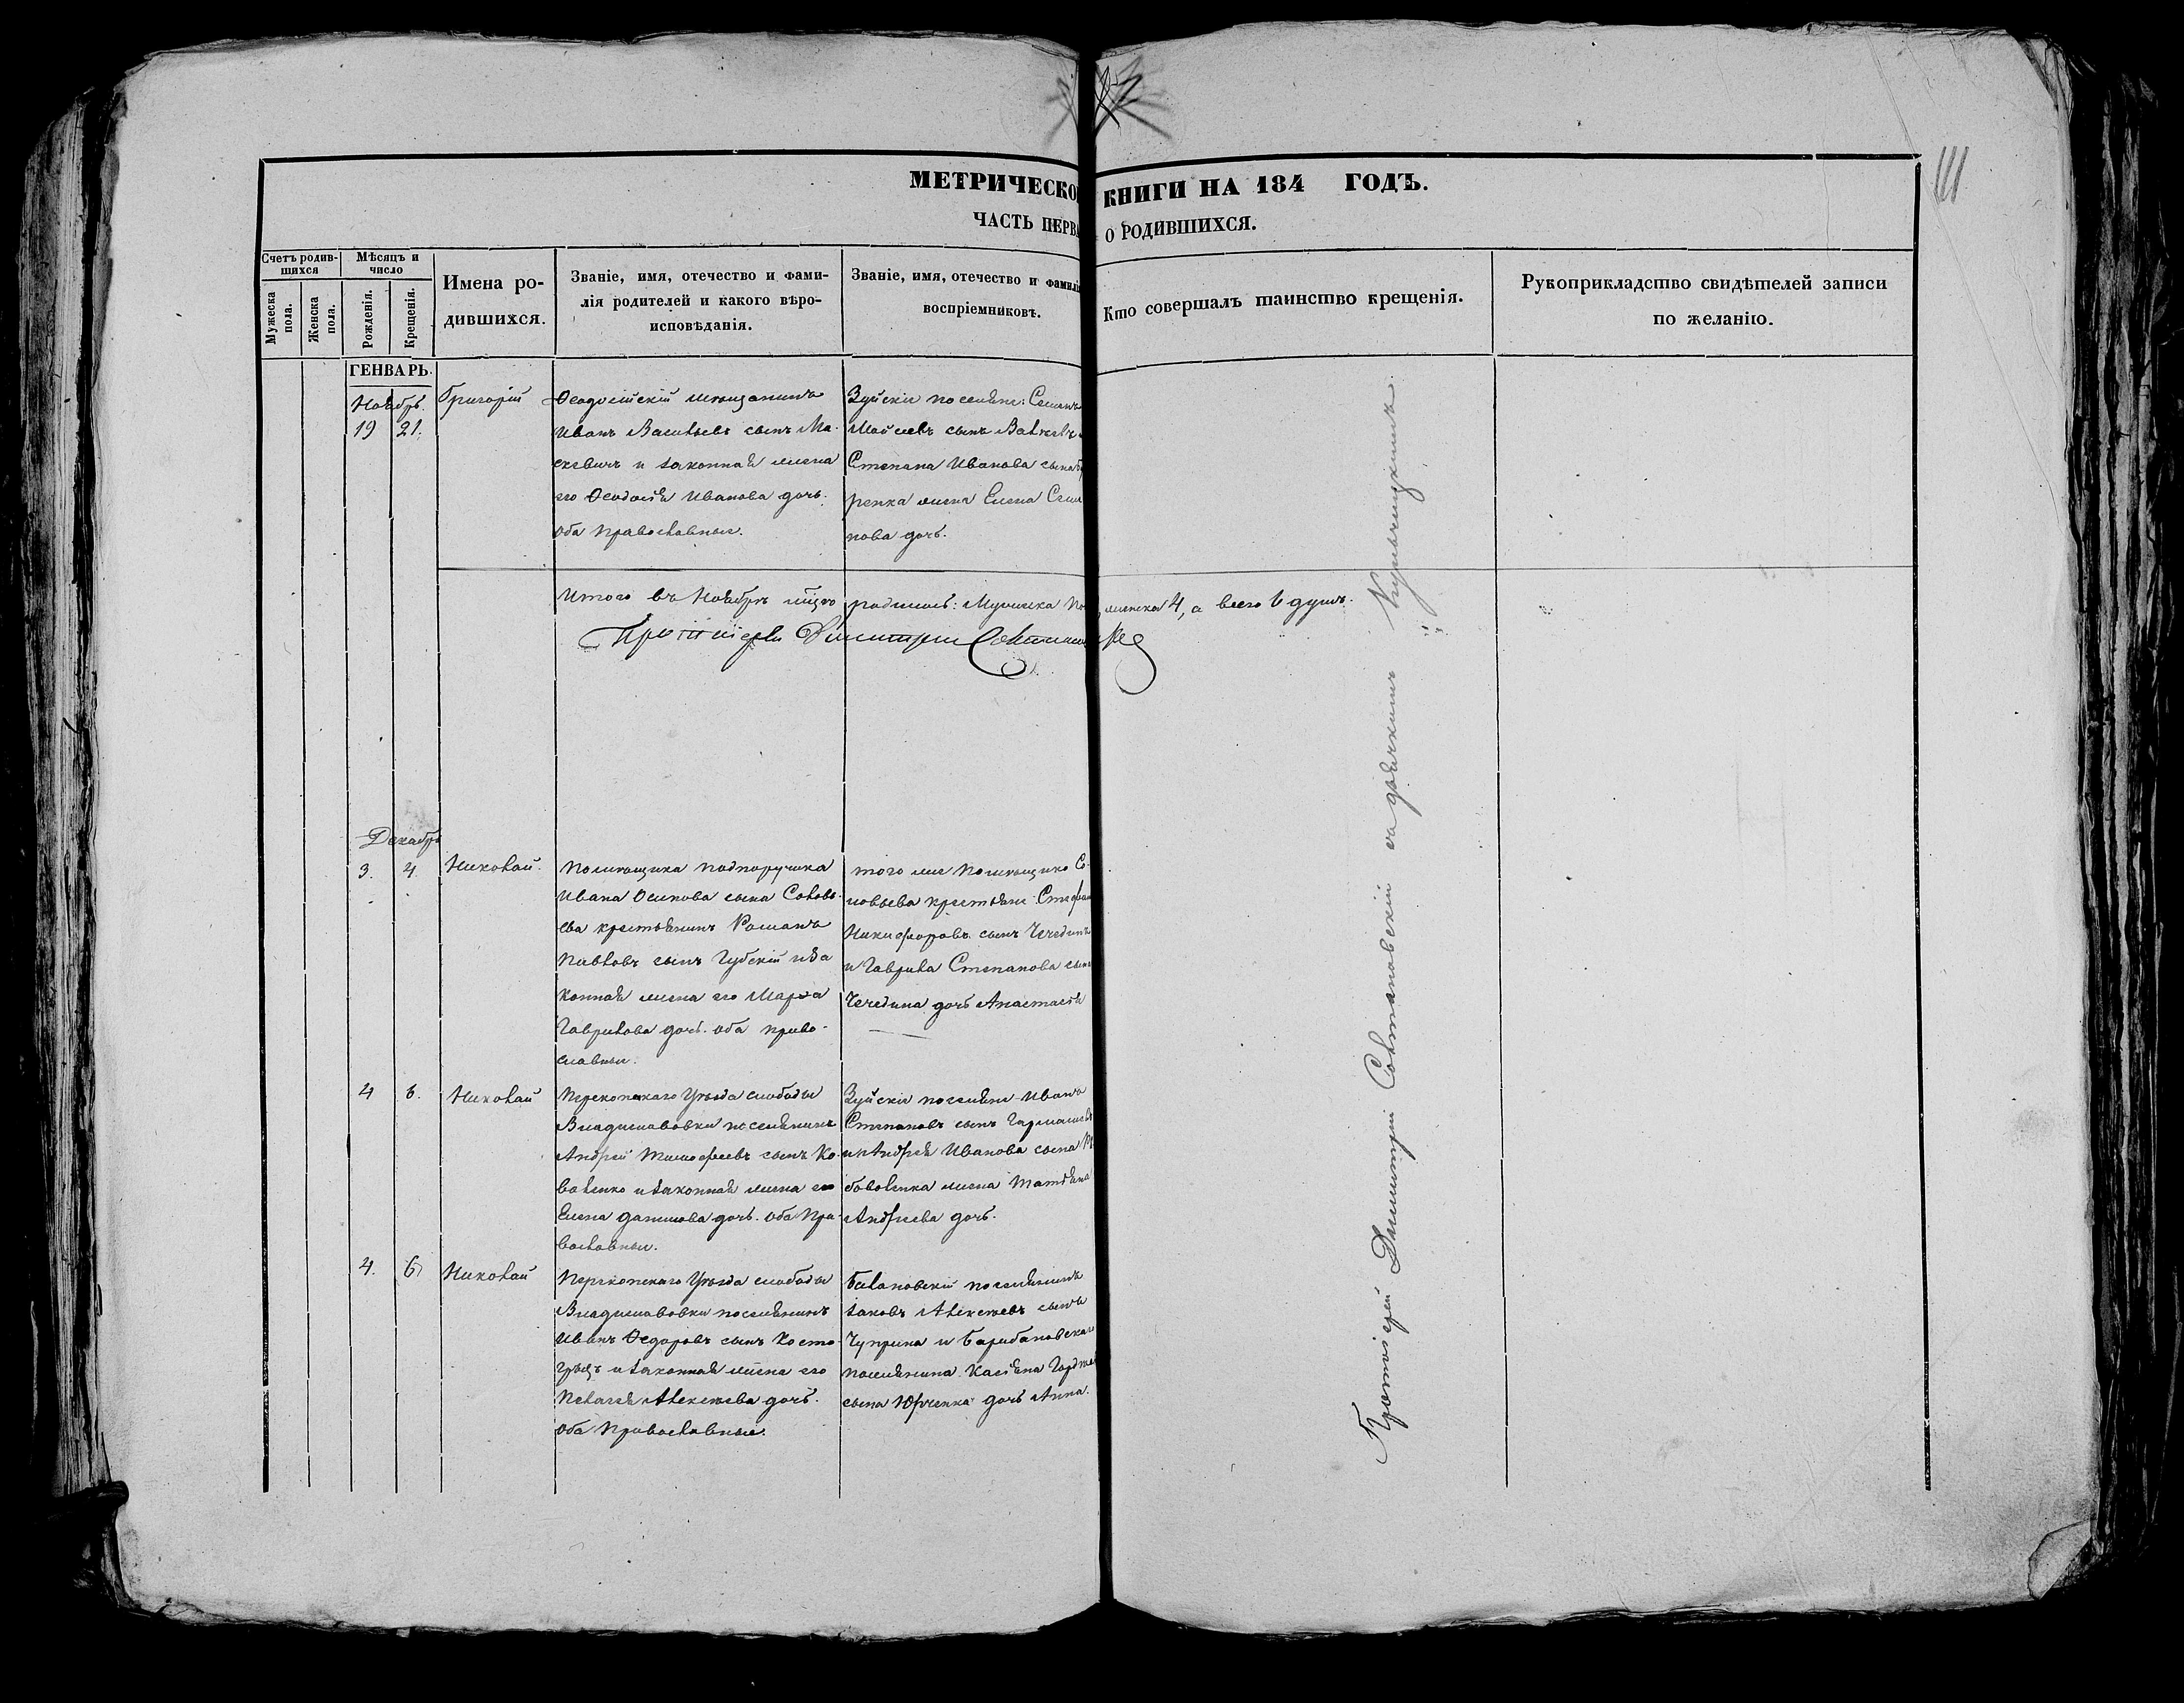 111
МЕТРИЧЕСКО КНИГИ НА 184 ГОДЪ.
ЧАСТЬ ПЕРВА О РОДИВШИХСЯ.
Счетъ родив-
шихся
Мужеска
пола.
Женска
пола.
Мѣсяцъ и
число
Рожденія.
Крещенія.
Имена ро-
дившихся.
Званіе, имя, отечество и фами-
лія родителей и какого вѣро-
исповѣданія.
Званіе, имя, отечество и фамилі
воспріемниковъ.
Кто совершалъ таинство крещенія.
Рукоприкладство свидѣтелей записи
по желанію.
ГЕНВАРЬ.
Ноябрь.
19 21.
Григорій
Ѳеодосійскій мѣщанинъ
Иванъ Васильевъ сынъ Ма-
скевичъ и законная жена
его Ѳеодосія Иванова дочь.
оба православные.
Зуйскіе поселяне: Семенъ
Моисеевъ сынъ
Степана Иванова сына
ренка жена Елена Семе
нова дочь.
Итого въ Ноябрѣ мцѣ родилось: Мужеска женска 4, а всего 6 душъ.
Протоіерей Димитрій
Декабрь
3. 4.
Николай.
Помѣщика подпоручика
Ивана Осипова сына Соловь-
ева крестьянинъ Романъ
Павловъ сынъ Губскій и за
конная жена его Марѳа
Гаврилова дочь. оба право-
славные.
того же помѣщика Со-
ловьева крестьяне: Стефан
Никифоровъ сынъ Чечединъ
и Гаврила Степанова сына
Чечедина дочь Анастасія
4 6.
Николай
Перекопскаго Уѣзда слободы
Владиславовки поселянинъ
Андрей Тимофеевъ сынъ Ко-
валенко и законная жена его
Елена Данилова дочь. оба пра-
вославные.
Зуйскіе поселяне Иванъ
Степановъ сынъ
и Андрея Иванова сына
боваленка жена Татіяна
Андреева дочь.
4. 6
Николай
Перекопскаго Уѣзда слободы
Владиславовки поселянинъ
Иванъ Ѳедоровъ сынъ Косто-
грызъ и законная жена его
Пелагея Алексѣева дочь.
оба православные.
Балановскій поселянинъ
Іаковъ Алексѣевъ сынъ
Чуприна и Барабановскаго
поселянина Касіяна
сына Юрченка дочь Анна.
Протоіерей Димитрій Солтановскій съ дьячкомъ